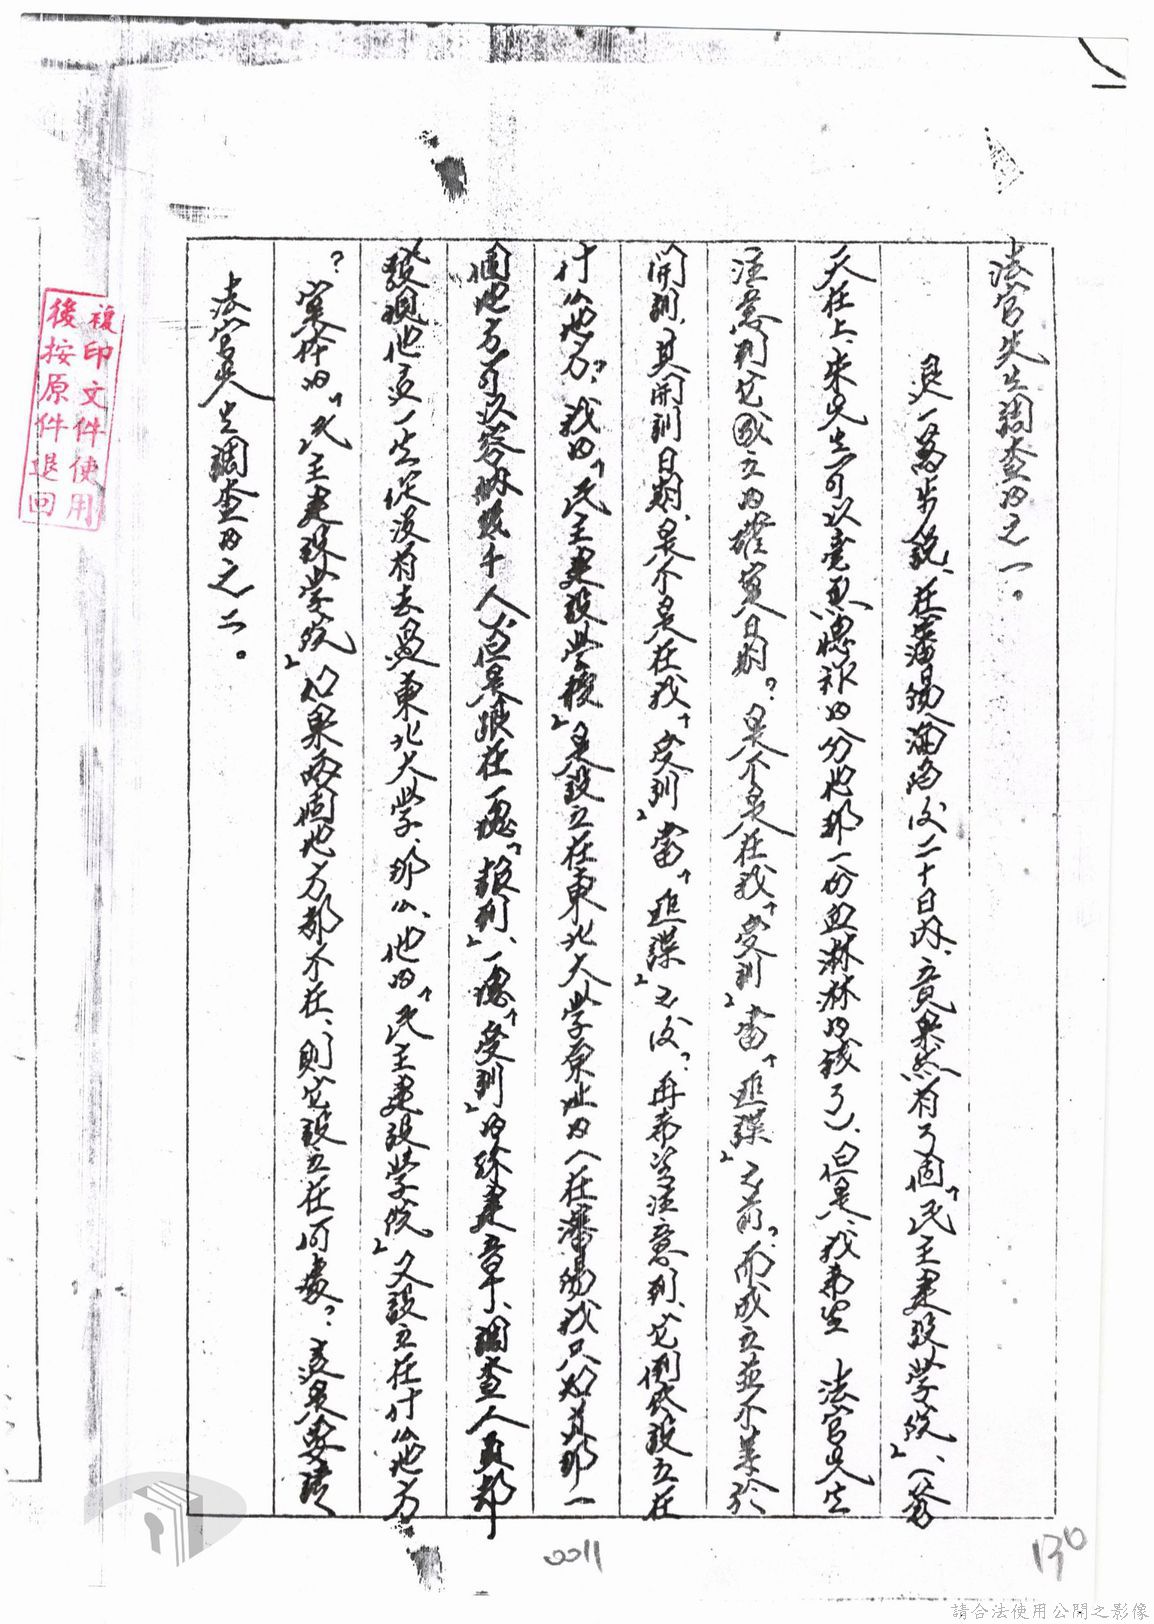 法官先生調查的之一。
退一萬步說、在瀋陽淪陷後二十日內、竟果然有了個「民主建設學院」、(蒼
天在上、朱先生可以毫無愧祚的分他那一份血淋淋的錢了)、但是、我希望 法官先生
注意到它成立的確實日期?是不是在我「受訓」當「匪諜」之前?而成立並不等於
開訓、其開訓日期、是不是在我「受訓」當「匪諜」之後?再希望注意到、它倒底設立在
什么地方?我的「民主建設學校」是設立在東北大學原址的(在瀋陽我只知道那一
個地方可以容納幾千人)、但是跟在一塊「報到」、一塊「受訓」的孫建章、調查人員都
發現他這一生從沒有去過東北大學、那么、他的「民主建設學院」又設立在什么地方
?實待的「民主建設學院」如果兩個地方都不在、則它設立在何處?這是要請
法官先生調查的之二。
複印文件使用
後按原件退回
0011
130
請合法使用公開之影像